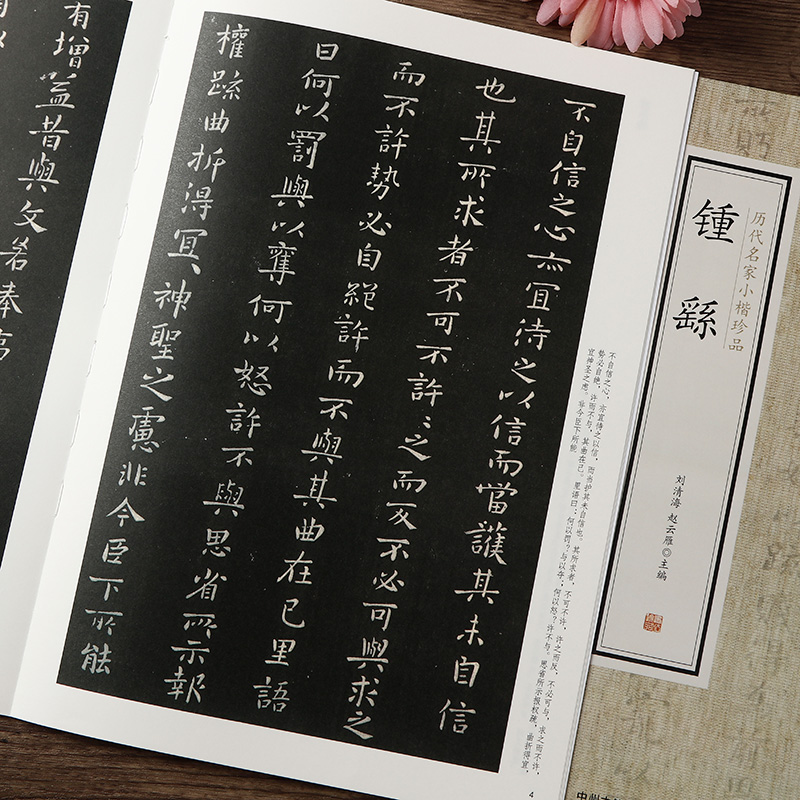 历代名家小楷珍品
锺繇
刘清海 赵云雁◎主编
不自信之心亦宜待之以信而當護其未自信
也其所求者不可不許々之而反不必可與求之
而不許勢必自絕許而不與其曲在已里語
曰何以罰與以奪何以怒許不與思省所示報
權疏曲折得宜神聖之慮非今臣下所能
不自信之心，亦宜待之以信，而当护其未自信也。其所求者，不可不许，许之而反，不必可与，求之而不许，
势必自绝，许而不与，其曲在己。里语曰：何以罚？与以夺；何以怒？许不与。思省所示报权疏，曲折得宜，
宜神圣之虑。非今臣下所能
4
有增益昔與文若奉高